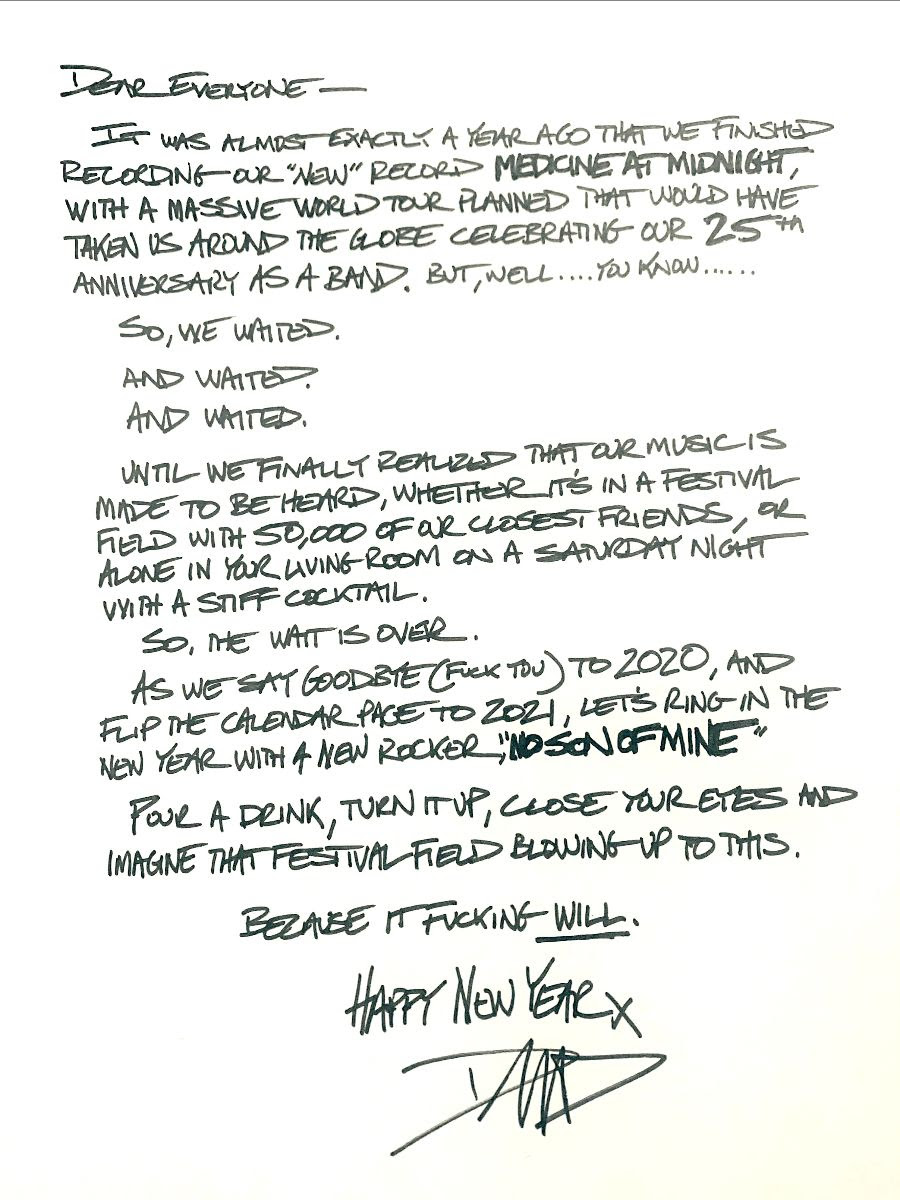 DEAR EVERYONE —
IT WAS ALMOST EXACTLY A YEAR AGO THAT WE FINISHED
RECORDING OUR "NEW" RECORD MEDICINE AT MIDNIGHT,
WITH A MASSIVE WORLD TOUR PLANNED THAT WOULD HAVE
TAKEN US AROUND THE GLOBE CELEBRATING OUR 25TH
ANNIVERSARY AS A BAND. BUT, WELL....YOU KNOW......
SO, WE WAITED.
AND WAITED.
AND WAITED.
UNTIL WE FINALLY REALIZED THAT OUR MUSIC IS
MADE TO BE HEARD, WHETHER IT'S IN A FESTIVAL
FIELD WITH 50,000 OF OUR CLOSEST FRIENDS, OR
ALONE IN YOUR LIVING ROOM ON A SATURDAY NIGHT
WITH A STIFF COCKTAIL.
SO, THE WAIT IS OVER.
AS WE SAY GOODBYE (FUCK YOU) TO 2020, AND
FLIP THE CALENDAR PAGE TO 2021, LET'S RING IN THE
NEW YEAR WITH A NEW ROCKER, "NO SON OF MINE"
POUR A DRINK, TURN IT UP, CLOSE YOUR EYES AND
IMAGINE THAT FESTIVAL FIELD BLOWING UP TO THIS.
BECAUSE IT FUCKING WILL.
HAPPY NEW YEAR X